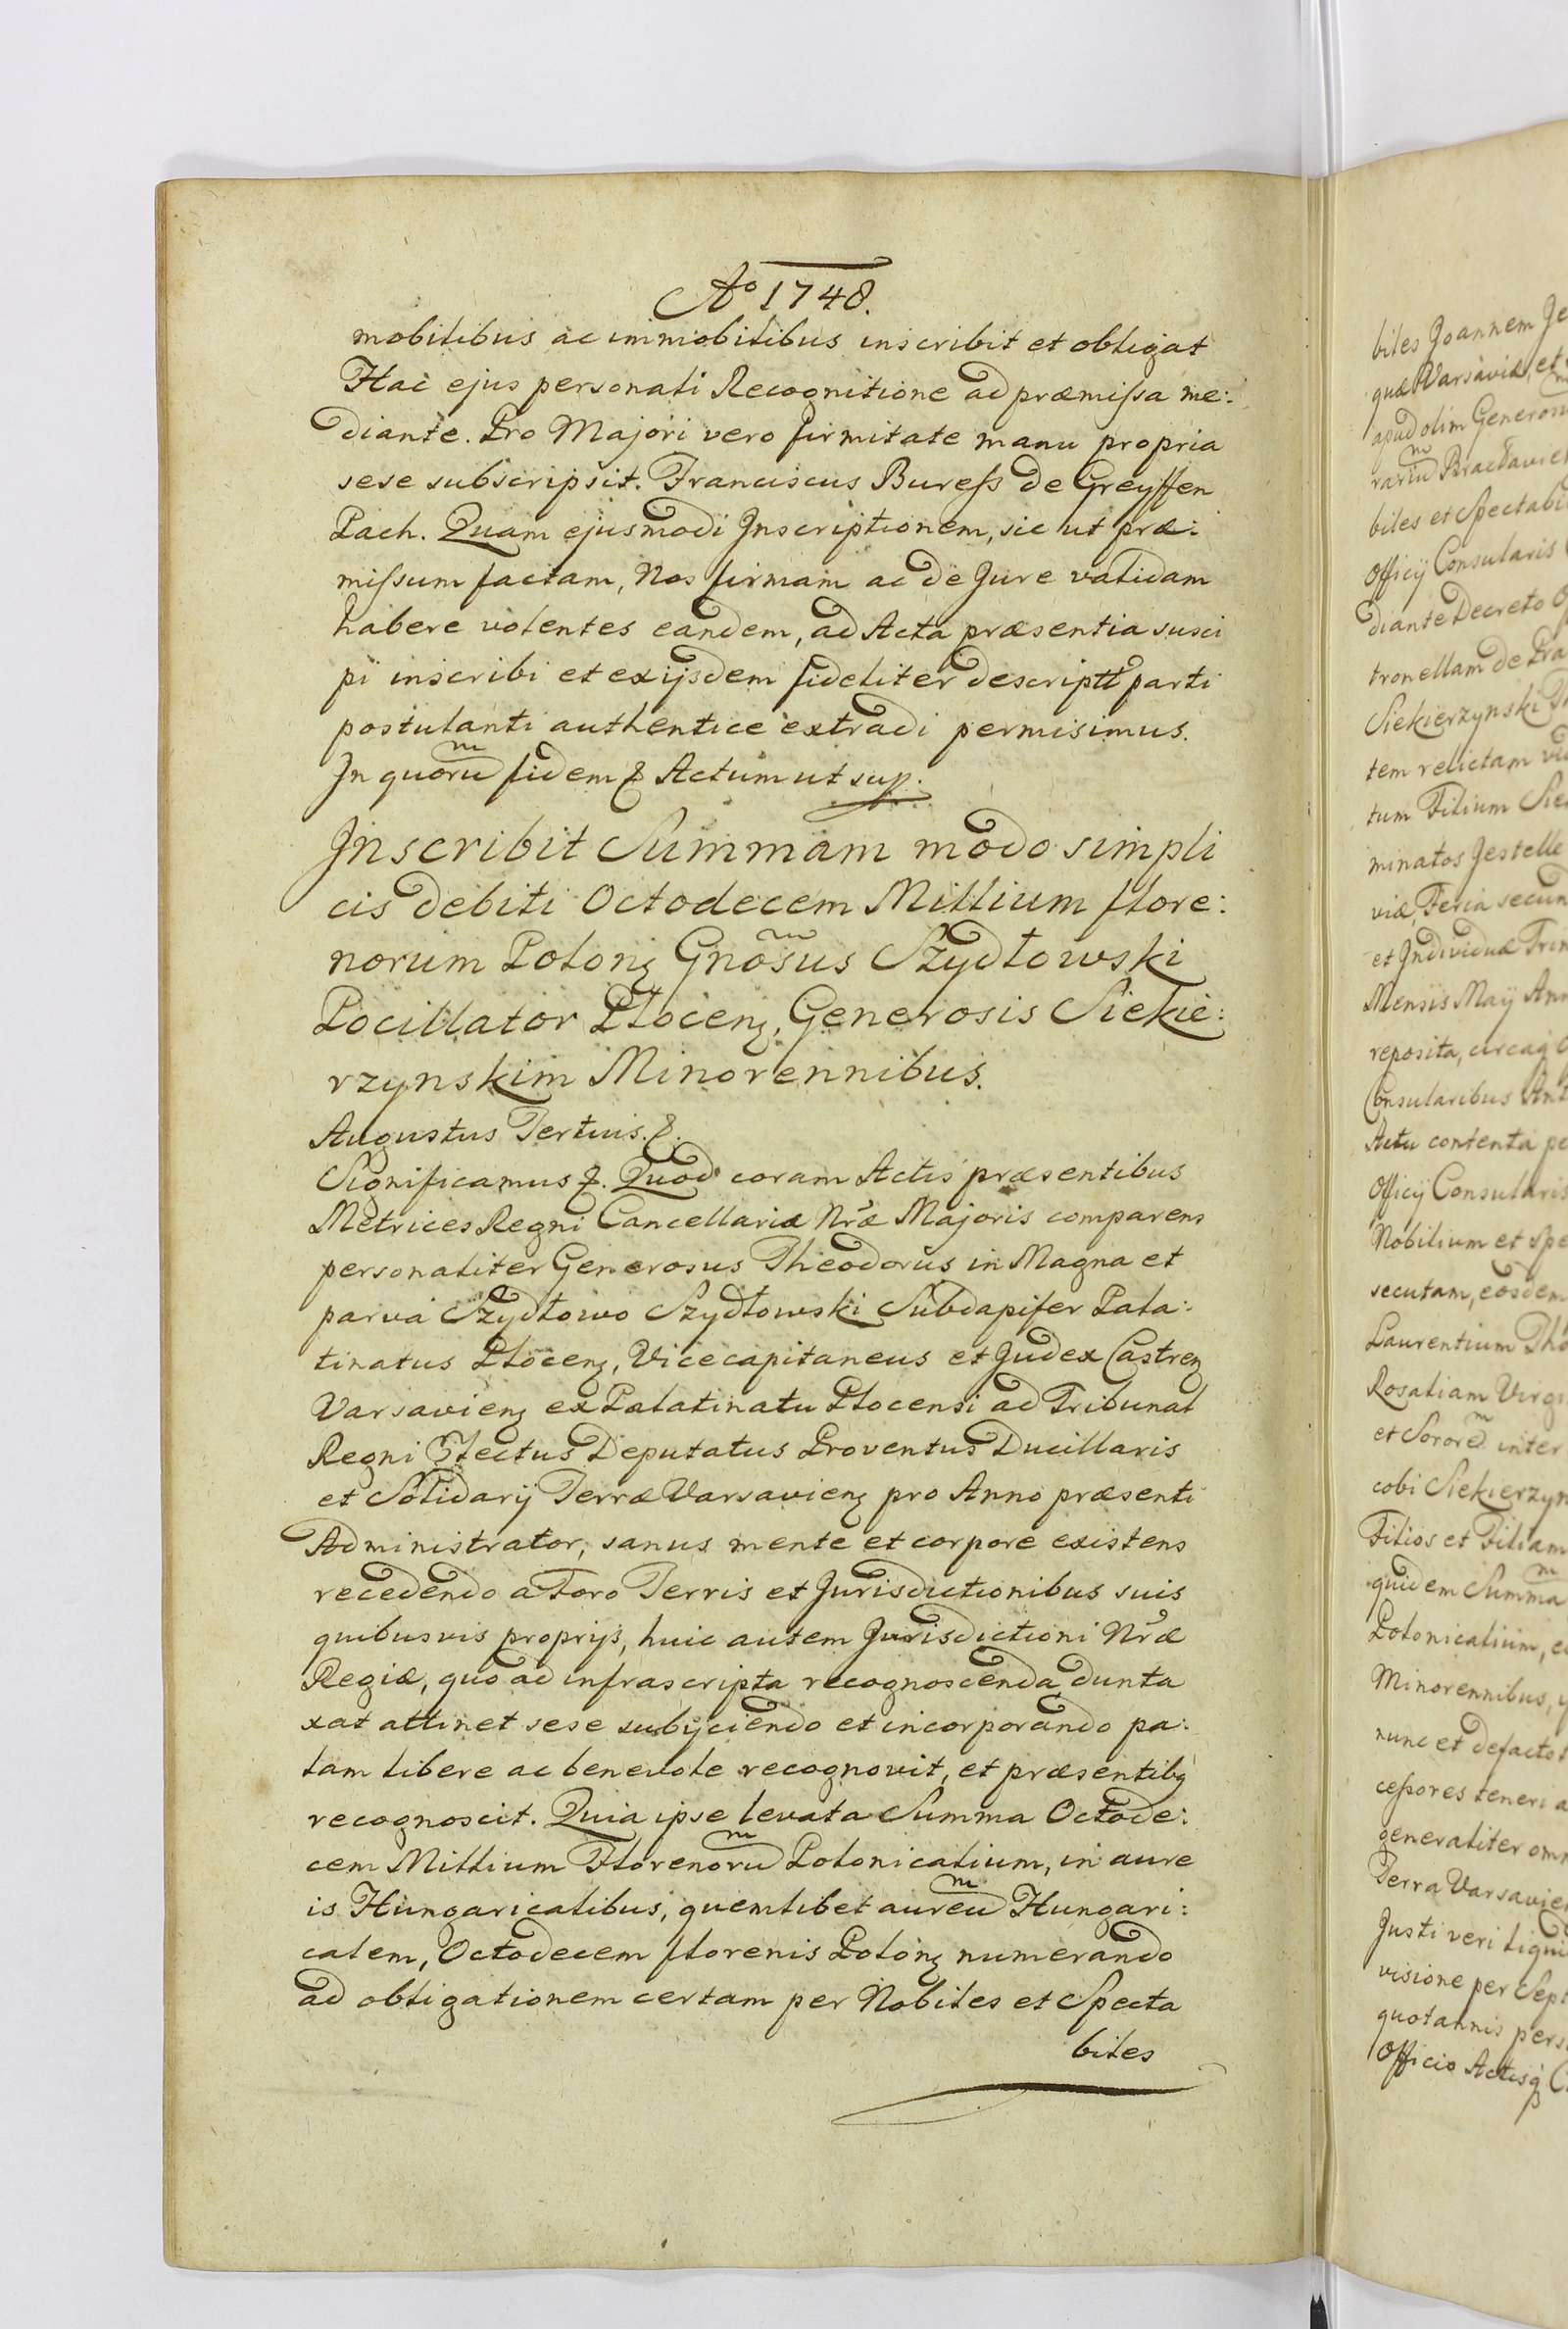 Ao 1748.
mobilibus ac immobilibus inscribit et obligat
Hac ejus personali Recognitione ad præmissa me:
diante. Pro Majori vero firmitate manu propria
sese subscripsit. Franciscus Buress de Greyffen
Pach. Quam ejusmodi Inscriptionem, sic ut præ:
missum factam, Nos firmam ac de Jure validam
habere volentes eandem, ad Acta præsentia susci
pi inscribi et ex ijsdem fideliter descriptt parti
postulanti authentice extradi permisimus.
In quorum fidem & Actum ut sup.
Inscribit Summam modo simpli
cis debiti Octodecem Millium flore:
norum Polonz Gnosus Szydłowski
Pocillator Płocenz, Generosis Siekie:
rzynskim Minorennibus.
Augustus Tertius. &.
Significamus &. Quod coram Actis præsentibus
Metrices Regni Cancellariæ Nræ Majoris comparens
personaliter Generosus Theodorus in Magna et
parva Szydłowo Szydłowski Subdapifer Pala:
tinatus Płocenz, Vicecapitaneus et Judex Castrenz
Varsavienz ex Palatinatu Plocensi ad Tribunal
Regni Electus Deputatus Proventus Ducillaris
et Solidarij Terræ Varsavienz pro Anno præsenti
Administrator, sanus mente et corpore existens
recedendo a Foro Terris et Jurisdictionibus suis
quibusvis proprijs, huic autem Jurisdictioni Nræ
Regiæ, quo ad infrascripta recognoscenda dunta
xat attinet sese subijciendo et incorporando pa:
lam libere ac benevole recognovit, et præsentibq
recognoscit. Quia ipse levata Summa Octode:
cem Millium Florenorum Polonicalium, in aure
is Hungaricalibus, quemlibet aureum Hungari:
calem, Octodecem florenis Polonz numerando
ad obligationem certam per Nobiles et Specta
biles
biles Joannem Je
quæ Varsaviæ, et
apud olim Generosu
rarium Bracłavie
biles et Spectabil
Officij Consularis
diante Decreto O
tronellam de Pra
Siekierzynski
tem relictam vid
tum Filium Sie
minatos Jestelle
viæ, Feria secun
et Individuæ Trin
Mensis Maij Ann
reposita, circaq
Consularibus Ant
Actu contenta pe
Officij Consularis
Nobilium et Spe
secutam, eosdem
Laurentium Tho
Rosaliam Virgi
et Sororem inter
cobi Siekierzyn
Filios et Filiam
quidem Summa
Polonicalium, e
Minorennibus,
nunc et defacto
cessores teneri a
generaliter omn
Terra Varsavien
Justi veri liqui
visione per Sept
quotannis pers
Officio Actisq